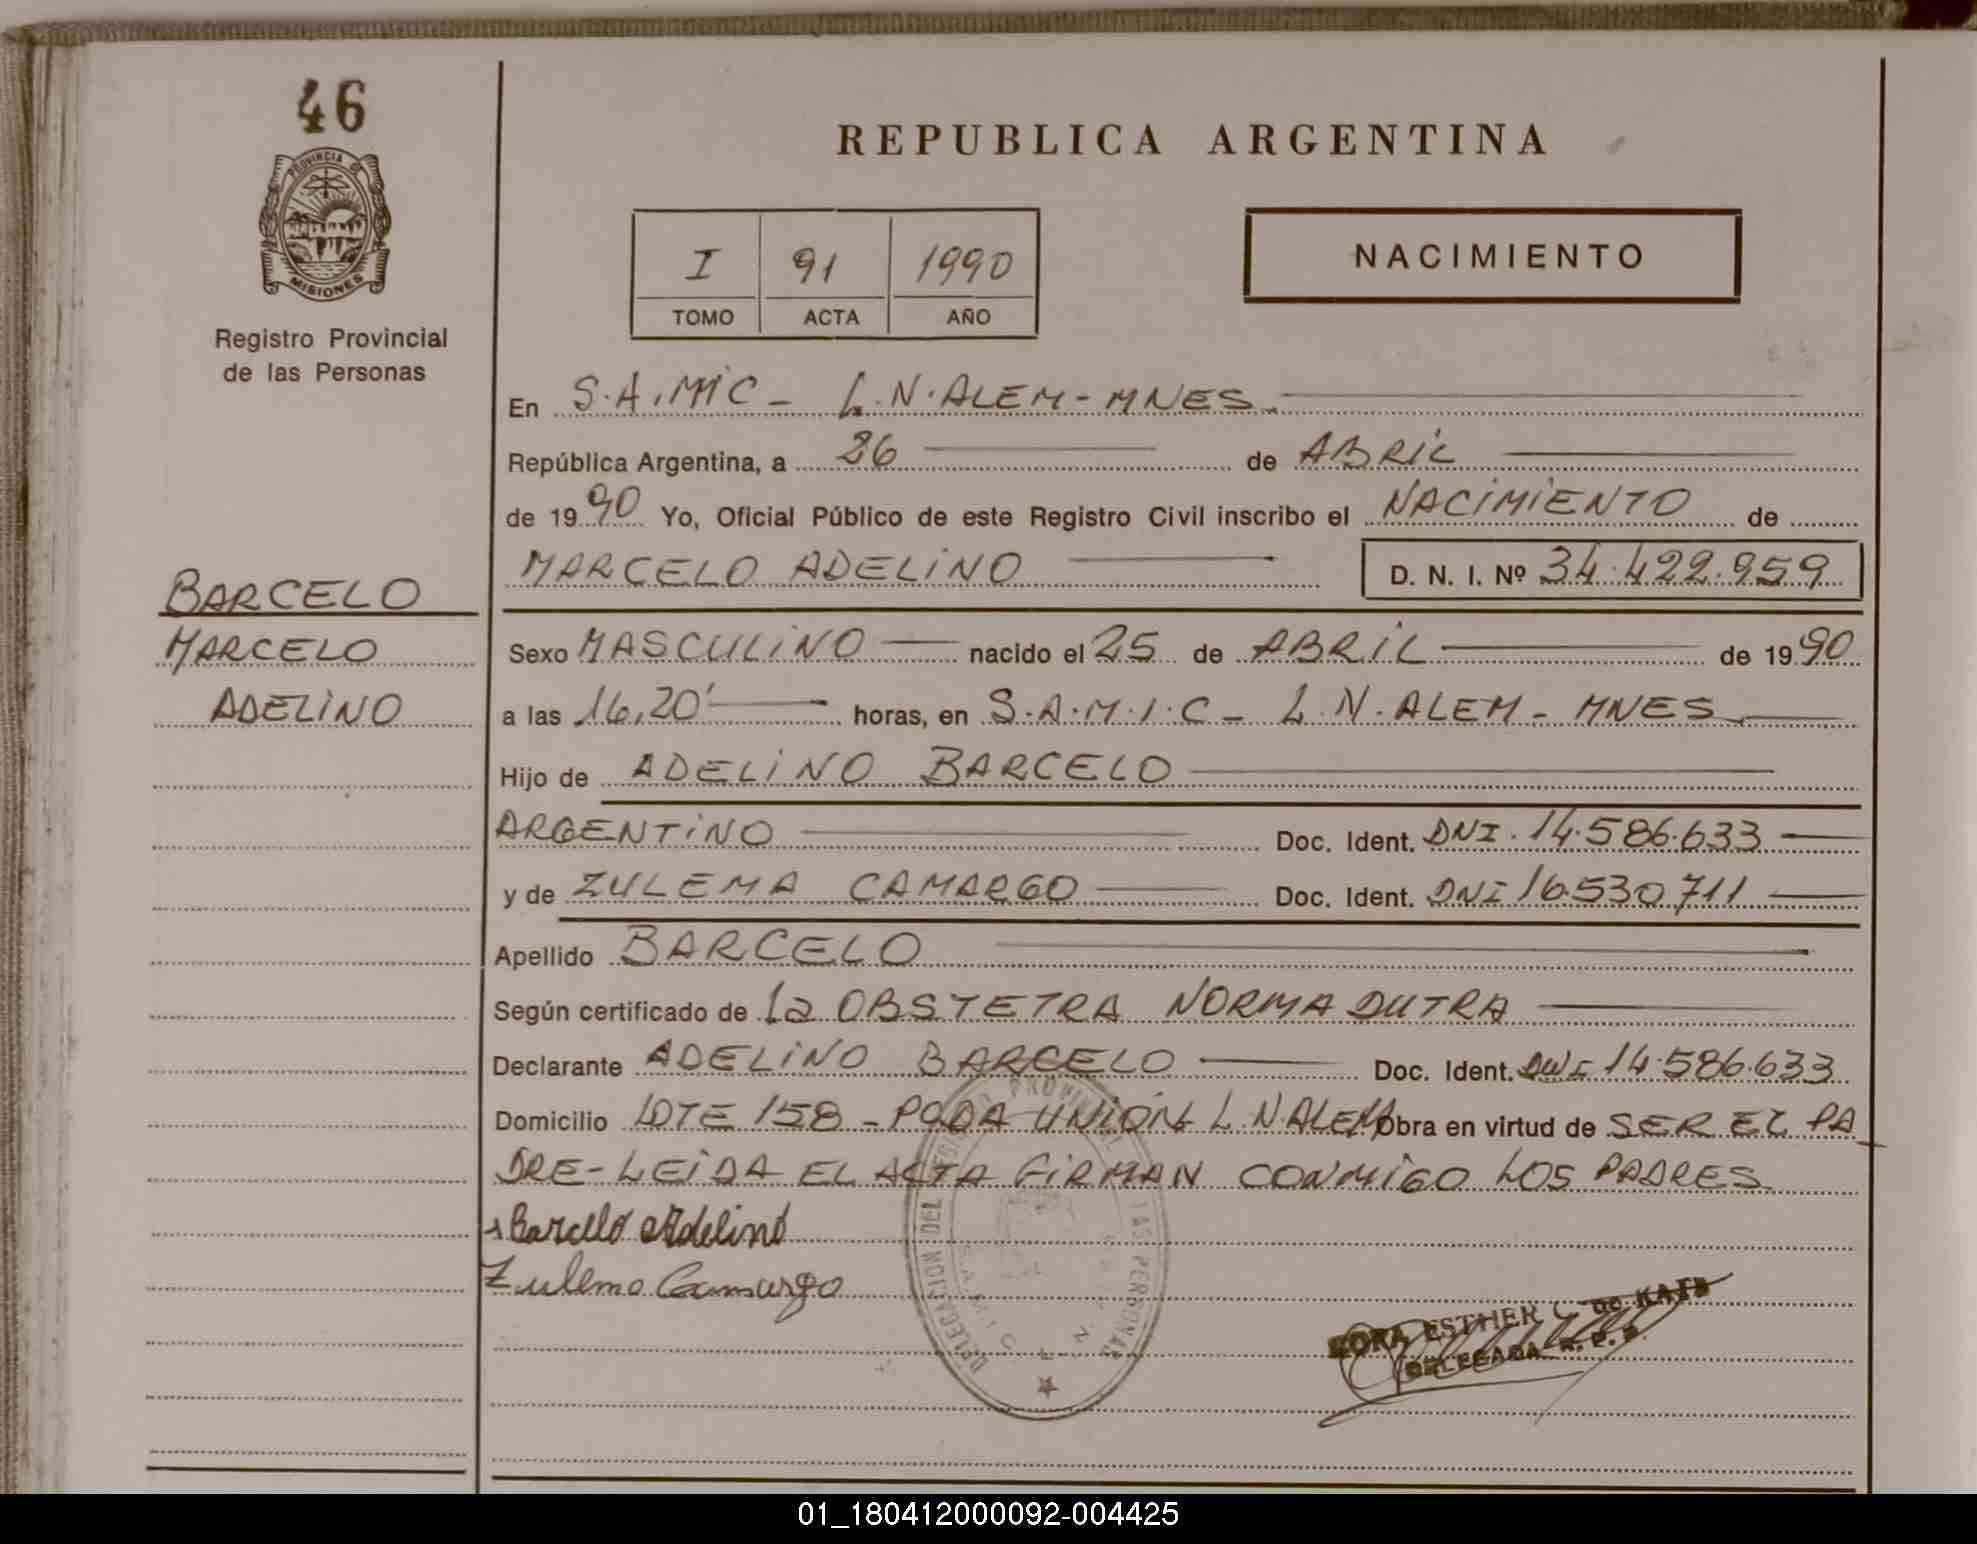 46
PROVINCIA DE
MISIONES
Registro Provincial
de las Personas
REPUBLICA ARGENTINA
I 91 1990
TOMO ACTA AÑO
NACIMIENTO
En S.A.MIC - L.N.ALEM - MNES.
República Argentina, a 26 de ABRIL
de 1990 Yo, Oficial Público de este Registro Civil inscribo el NACIMIENTO de
MARCELO ADELINO D. N. I. Nº 34.422.959
BARCELO
MARCELO
ADELINO
Sexo MASCULINO nacido el 25 de ABRIL de 1990
a las 16,20' horas, en S.A.M.I.C - L.N.ALEM - MNES
Hijo de ADELINO BARCELO
ARGENTINO Doc. Ident. DNI. 14.586.633
y de ZULEMA CAMARGO Doc. Ident. DNI 16.530.711
Apellido BARCELO
Según certificado de La OBSTETRA NORMA DUTRA
Declarante ADELINO BARCELO Doc. Ident. DNI 14.586.633
Domicilio LOTE 158 - PCDA UNION L.N.ALEM Obra en virtud de SER EL PA
DRE - LEIDA EL ACTA FIRMAN CONMIGO LOS PADRES
Barcelo Adelino
Zulema Camargo
DELEGACION DEL REGISTRO PROVINCIAL DE LAS PERSONAS
S.A.M.I.C
ESTHER C. de KATZ
DELEGADA R. P. P.
01_180412000092-004425